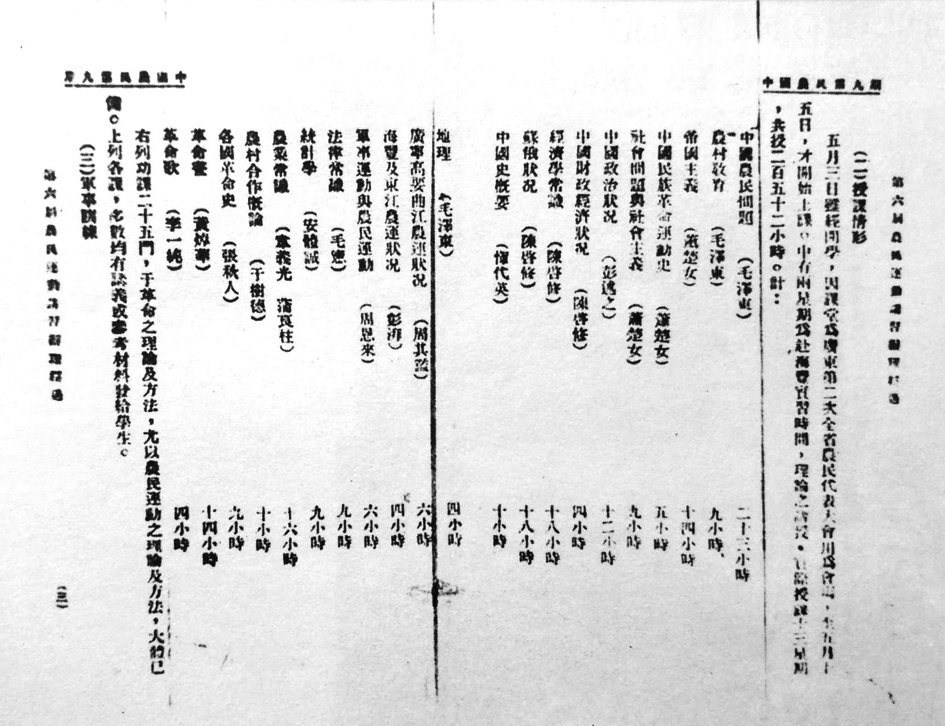 中國農民第九期
第六屆農民運動講習所辦理經過
(二)授課情形
五月三日雖經開學,因課堂爲廣東第二次全省農民代表大會用爲會場,至五月十
五日,才開始上課。中有兩星期爲赴海豐實習時間,理論之 授課十三星期
,共授二百五十二小時。計:
中國農民問題 (毛澤東) 二十三小時
農村敎育 (毛澤東) 九小時、
帝國主義 (蕭楚女) 十四小時
中國民族革命運動史 (蕭楚女) 五小時
社會問題與社會主義 (蕭楚女) 九小時
中國政治狀況 (彭述之) 十二小時
中國財政經濟狀况 (陳啓修) 四小時
經濟學常識 (陳啓修) 十八小時
蘇俄狀況 (陳啓修) 十八小時
中國史概要 (惲代英) 十小時
地理 (毛澤東) 四小時
廣寧高要曲江農運狀況 (周其鑑) 六小時
海豐及東江農運狀況 (彭湃) 四小時
軍事運動與農民運動 (周恩來) 六小時
法律常識 (毛憲) 九小時
統計學 (安體誠) 九小時
農業常識 (韋義光 蒲良柱) 十六小時
農村合作概論 (于樹德) 十小時
各國革命史 (張秋人) 九小時
革命畫 (黃焯華) 十四小時
革命歌 (李一純) 四小時
右列功課二十五門,于革命之理論及方法,尤以農民運動之理論及方法,大體已
備。上列各課,多數均有講義或參考材料發給學生。
(三)軍事訓練
中國農民第九期
第六屆農民運動講習所辦理經過
(三)